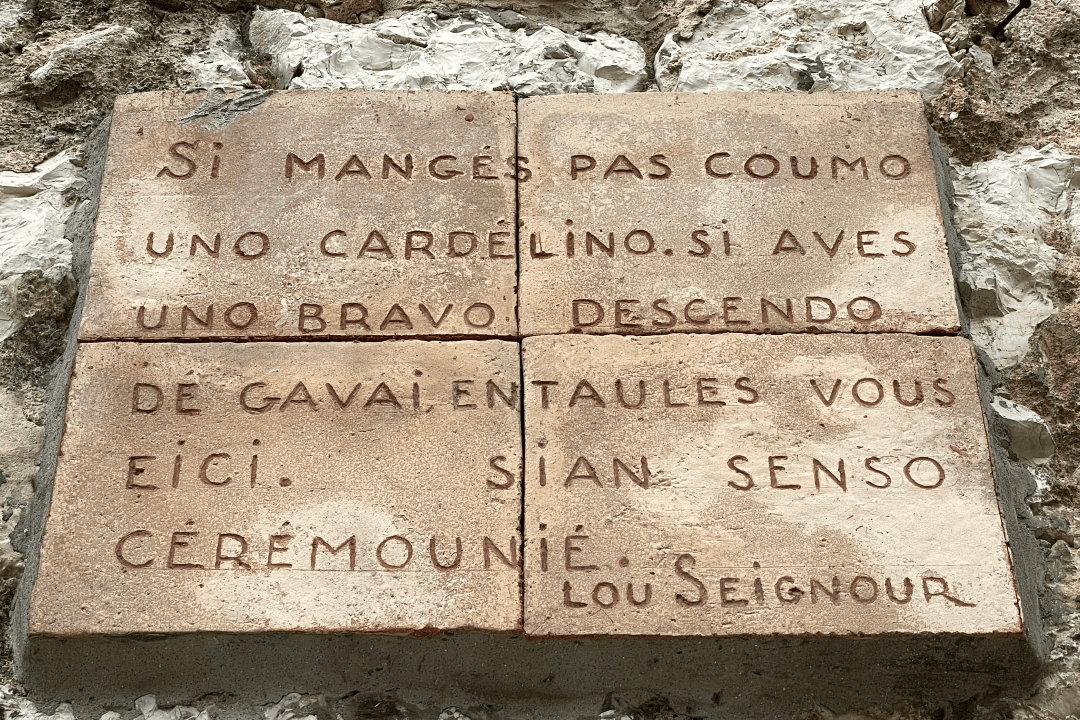 Si MANGÉS PAS COUMO
UNO CARDÉLiNO. Si AVES
UNO BRAVO DESCENDO
DÉ GAVAi, ENTAULES VOUS
EiCi. SiAN SENSO
CÉRÉMOUNiÉ.
LOU SEIGNOUR